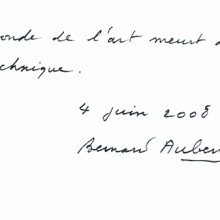 onde de l'art meurt
chnique.
4 juin 2008
Bernard Auber